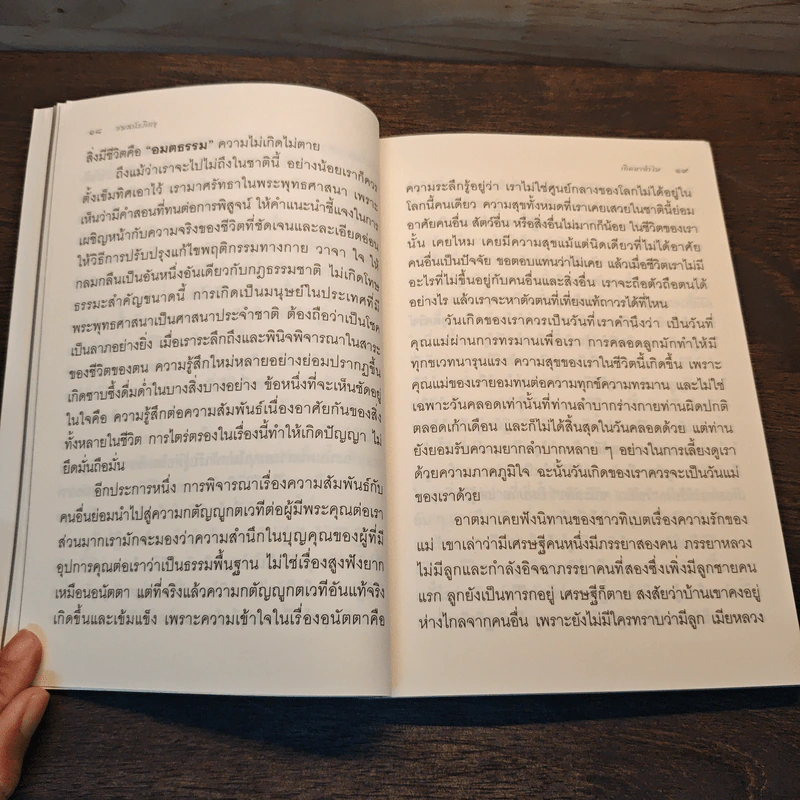 ๑๘
สิ่งมีชีวิตคือ “อมตธรรม” ความไม่เกิดไม่ตาย
ถึงแม้ว่าเราจะไปไม่ถึงในชาตินี้ อย่างน้อยเราก็ควร
ตั้งเข็มทิศเอาไว้ เรามาศรัทธาในพระพุทธศาสนา เพราะ
เห็นว่ามีคำสอนที่ทนต่อการพิสูจน์ ให้คำแนะนำชี้แจงในการ
เผชิญหน้ากับความจริงของชีวิตที่ชัดเจนและละเอียดอ่อน
ให้วิธีการปรับปรุงแก้ไขพฤติกรรมทางกาย วาจา ใจ ให้
กลมกลืนเป็นอันหนึ่งอันเดียวกับกฎธรรมชาติ ไม่เกิดโทษ
ธรรมะสำคัญขนาดนี้ การเกิดเป็นมนุษย์ในประเทศที่มี
พระพุทธศาสนาเป็นศาสนาประจำชาติ ต้องถือว่าเป็นโชค
เป็นลาภอย่างยิ่ง เมื่อเราระลึกถึงและพินิจพิจารณาในสาระ
ของชีวิตของตน ความรู้สึกใหม่หลายอย่างย่อมปรากฏขึ้น
เกิดซาบซึ้งดื่มด่ำในบางสิ่งบางอย่าง ข้อหนึ่งที่จะเห็นชัดอยู่
ในใจคือ ความรู้สึกต่อความสัมพันธ์เนื่องอาศัยกันของสิ่ง
ทั้งหลายในชีวิต การไตร่ตรองในเรื่องนี้ทำให้เกิดปัญญา ไม่
ยึดมั่นถือมั่น
อีกประการหนึ่ง การพิจารณาเรื่องความสัมพันธ์กับ
คนอื่นย่อมนำไปสู่ความกตัญญูกตเวทีต่อผู้มีพระคุณต่อเรา
ส่วนมากเรามักจะมองว่าความสำนึกในบุญคุณของผู้ที่มี
อุปการคุณต่อเราว่าเป็นธรรมพื้นฐาน ไม่ใช่เรื่องสูงฟังยาก
เหมือนอนัตตา แต่ที่จริงแล้วความกตัญญูกตเวทีอันแท้จริง
เกิดขึ้นและเข้มแข็ง เพราะความเข้าใจในเรื่องอนัตตาคือ
เกิดมาทำไม ๑๙
ความระลึกรู้อยู่ว่า เราไม่ใช่ศูนย์กลางของโลกไม่ได้อยู่ใน
โลกนี้คนเดียว ความสุขทั้งหมดที่เราเคยเสวยในชาตินี้ย่อม
อาศัยคนอื่น สัตว์อื่น หรือสิ่งอื่นไม่มากก็น้อย ในชีวิตของเรา
นั้น เคยไหม เคยมีความสุขแม้แต่นิดเดียวที่ไม่ได้อาศัย
คนอื่นเป็นปัจจัย ขอตอบแทนว่าไม่เคย แล้วเมื่อชีวิตเราไม่มี
อะไรที่ไม่ขึ้นอยู่กับคนอื่นและสิ่งอื่น เราจะถือตัวถือตนได้
อย่างไร แล้วเราจะหาตัวตนที่เที่ยงแท้ถาวรได้ที่ไหน
วันเกิดของเราควรเป็นวันที่เราคำนึงว่า เป็นวันที่
คุณแม่ผ่านการทรมานเพื่อเรา การคลอดลูกมักทำให้มี
ทุกขเวทนารุนแรง ความสุขของเราในชีวิตนี้เกิดขึ้น เพราะ
คุณแม่ของเรายอมทนต่อความทุกข์ความทรมาน และไม่ใช่
เฉพาะวันคลอดเท่านั้นที่ท่านลำบากร่างกายท่านผิดปกติ
ตลอดเก้าเดือน และก็ไม่ได้สิ้นสุดในวันคลอดด้วย แต่ท่าน
ยังยอมรับความยากลำบากหลาย ๆ อย่างในการเลี้ยงดูเรา
ด้วยความภาคภูมิใจ ฉะนั้นวันเกิดของเราควรจะเป็นวันแม่
ของเราด้วย
อาตมาเคยฟังนิทานของชาวทิเบตเรื่องความรักของ
แม่ เขาเล่าว่ามีเศรษฐีคนหนึ่งมีภรรยาสองคน ภรรยาหลวง
ไม่มีลูกและกำลังอิจฉาภรรยาคนที่สองซึ่งเพิ่งมีลูกชายคน
แรก ลูกยังเป็นทารกอยู่ เศรษฐีก็ตาย สงสัยว่าบ้านเขาคงอยู่
ห่างไกลจากคนอื่น เพราะยังไม่มีใครทราบว่ามีลูก เมียหลวง